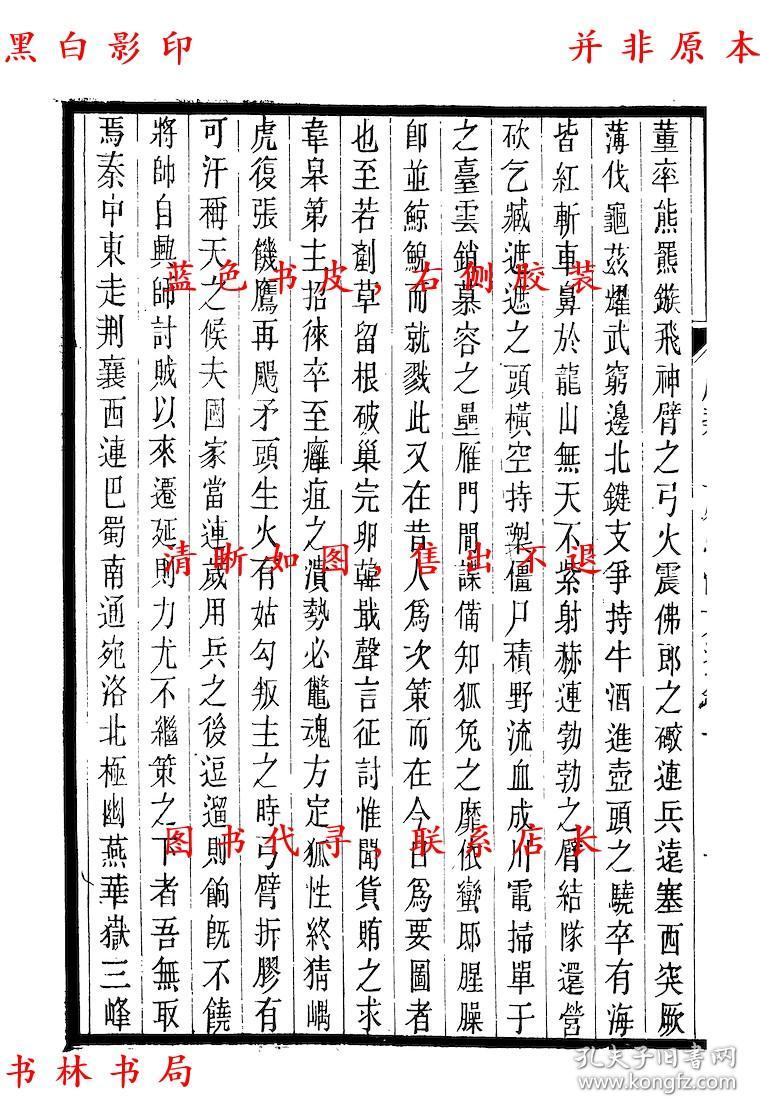 黑白影印
并非原本
董率熊羆鏃飛神臂之弓火震佛郎之礮連兵遠塞西突厥
薄伐龜茲燿武窮邊北鍵支爭持牛酒進壺頭之驍卒有海
皆紅斬車鼻於龍山無天不紫射赫連勃勃之臂結隊還營
砍乞臧遮遮之頭橫空持槊僵尸積野流血成川電掃單于
之臺雲銷慕容之壘雁門間諜備知狐兔之靡依蠻邸腥臊
卽並鯨鯢而就戮此又在昔人爲次策而在今日爲要圖者
也至若剷草留根破巢完卵韓戢聲言征討惟聞貨賄之求
韋皋第主招徠卒至癰疽之潰勢必鼈魂方定狐性終猜嵎
虎復張饑鷹再颺矛頭生火有姑勾叛主之時弓臂折膠有
可汗稱天之候夫國家當連歲用兵之後逗遛則餉旣不饒
將帥自興師討賊以來遷延則力尤不繼策之下者吾無取
焉秦中東走荆襄西連巴蜀南通宛洛北極幽燕華嶽三峰
蓝色书皮，右侧胶装
清晰如图，售出不退
图书代寻，联系店长
书林书局
孔夫子旧书网
www.kongfz.com